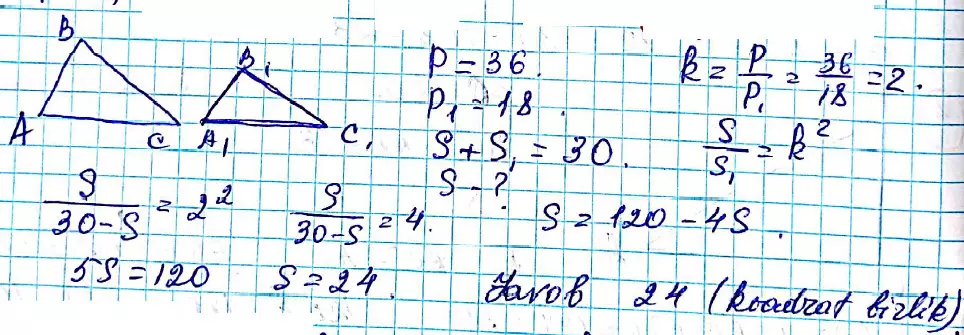 B
B₁
A
C
A₁
C₁
P = 36.
P₁ = 18.
S + S₁ = 30.
S - ?
k = P/P₁ = 36/18 = 2.
S/S₁ = k²
S/(30-S) = 2²
S/(30-S) = 4.
S = 120 - 4S.
5S = 120
S = 24.
Javob 24 (kvadrat birlik).